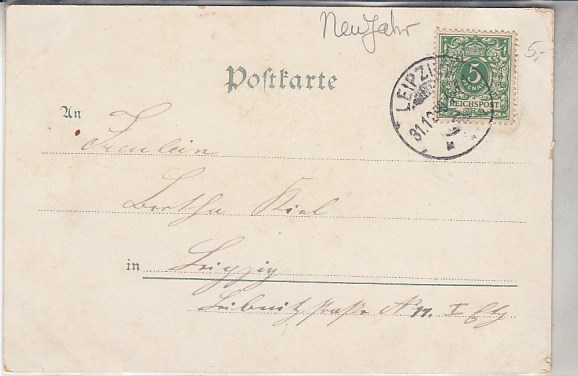 NeuJahr
5,-
5
REICHSPOST
LEIPZIG
31.12
Postkarte
An
Fräulein
Bertha Kiel
in Leipzig
Leibnitzstraße N 11. I